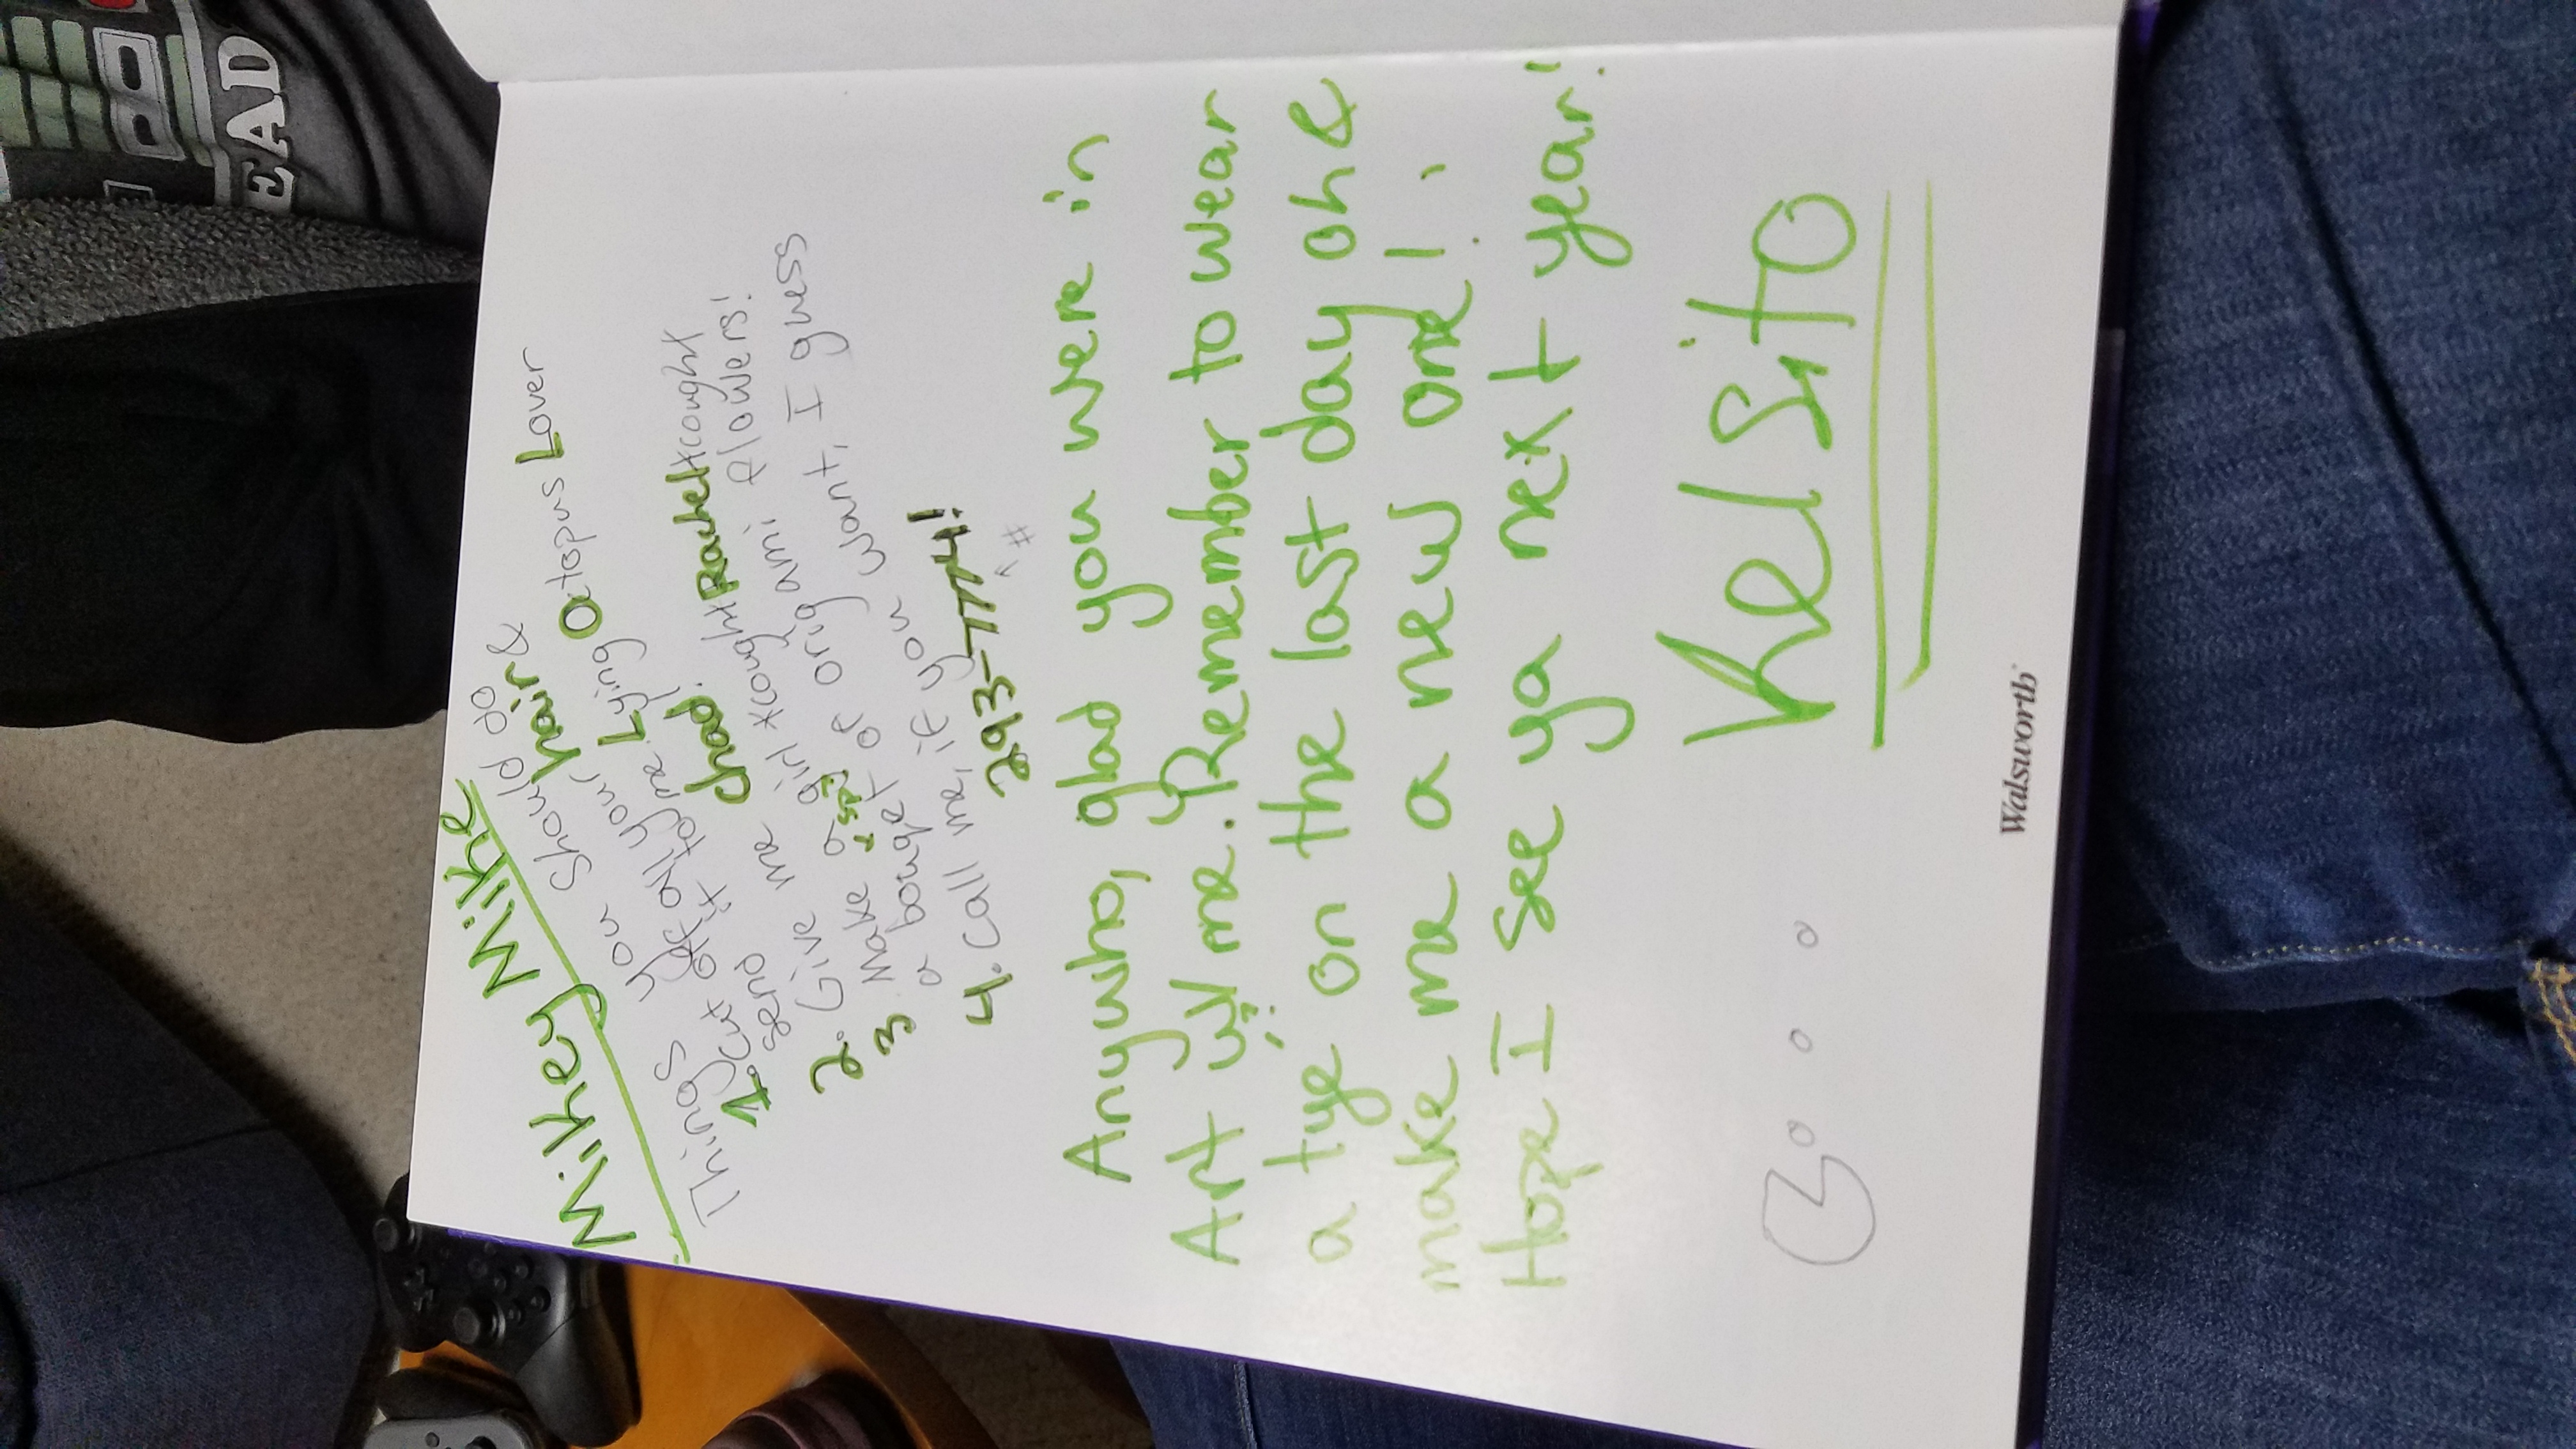 EAD
Mikey Mike
Things you should do
1. Cut off all your hair &
send it to me Lying Octopus Lover
Chad!
2. Give me a girl *cough* Rachel *cough*
3. Make a bouqet of origami flowers!
: sp?
4. Call me, if you want, I guess
293-7774! ^ #
Anywho, glad you were in
Art w/ me. Remember to wear
a tye on the last day oh &
make me a new one! !
Hope I see ya next year!
Kelsito
Walsworth